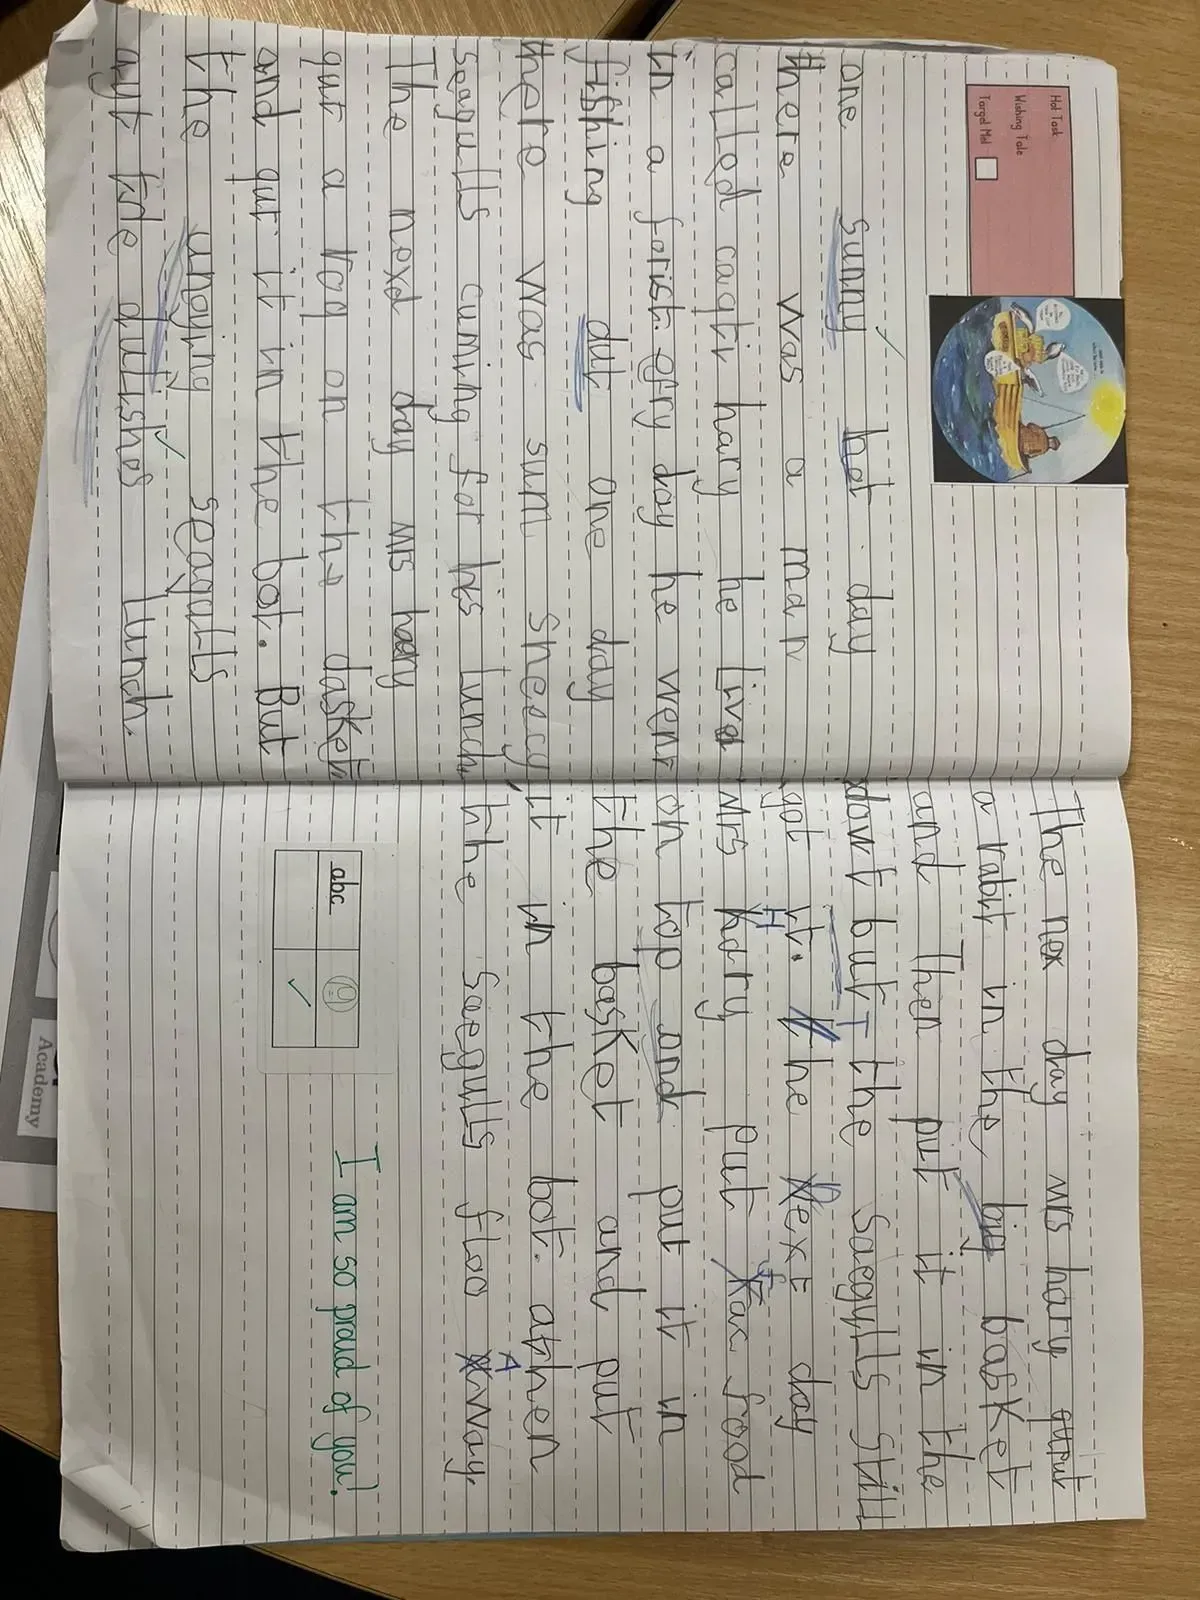 Hot Task
Wishing Tale
Target Met
one sunny hot day
there was a man
called captin hary he live
in a forist. efry day he went
fishing dut one day
there was sum sneeey
seagulls cuming for his lunch,
The nexd day Mrs hary
put a rog on the dasket
and put it in the bot. But
the unoying seagulls
ayt fde dulishos lunch.
The nex day Mrs hary put
a rabit in the big basket
and Then put it in the
dowt but the saegulls still
got it. the next day
Mrs Hary put fac food
on top and put it in
the basket and put
it in the bot. athen
the saegulls floo Away.
abc
I am so proud of you!
Academy